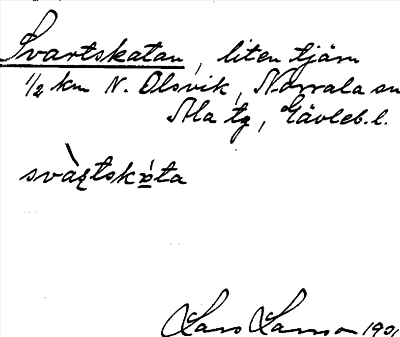 Svartskatan, liten tjärn
1/2 km N. Olsvik, Norrala sn
Ala tg, Gävleb. l.
svàʈtskɑ́ta
Lars Larsson 190